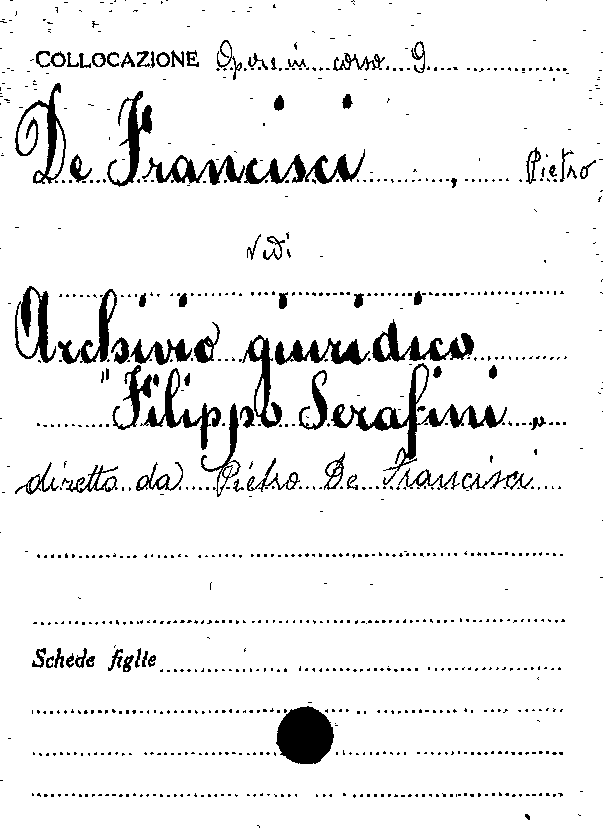 COLLOCAZIONE Opere in corso 9
De Francisci, Pietro
vedi
Archivio giuridico
"Filippo Serafini"
diretto da Pietro De Francisci
Schede figlie